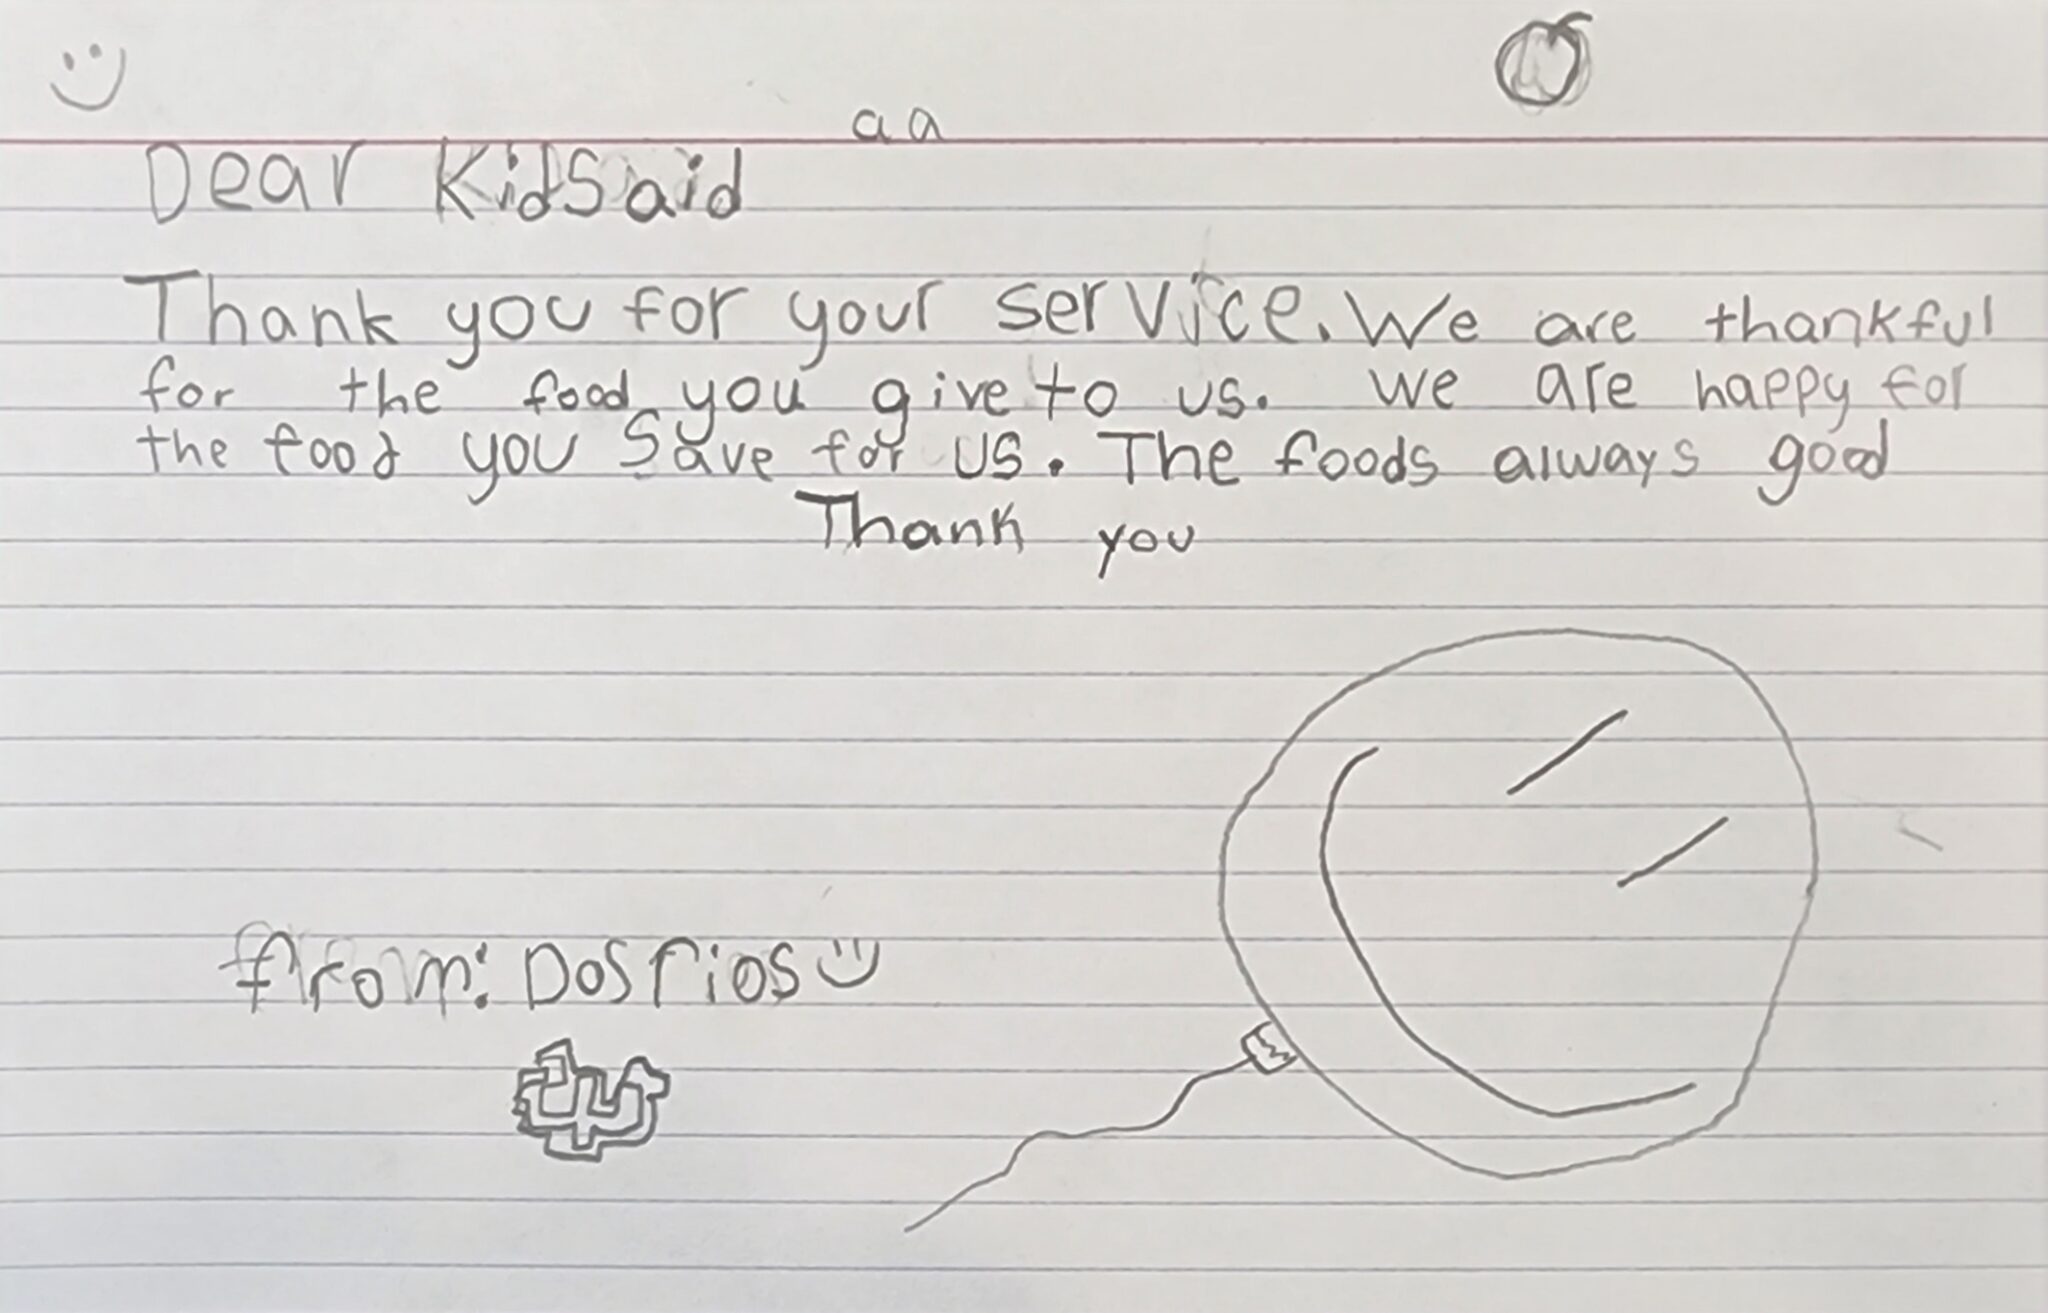 aa
Dear KidSaid
Thank you for your service. We are thankful
for the food you give to us. We are happy for
the food you Save for us. The foods always good
Thank you
from: Dos rios